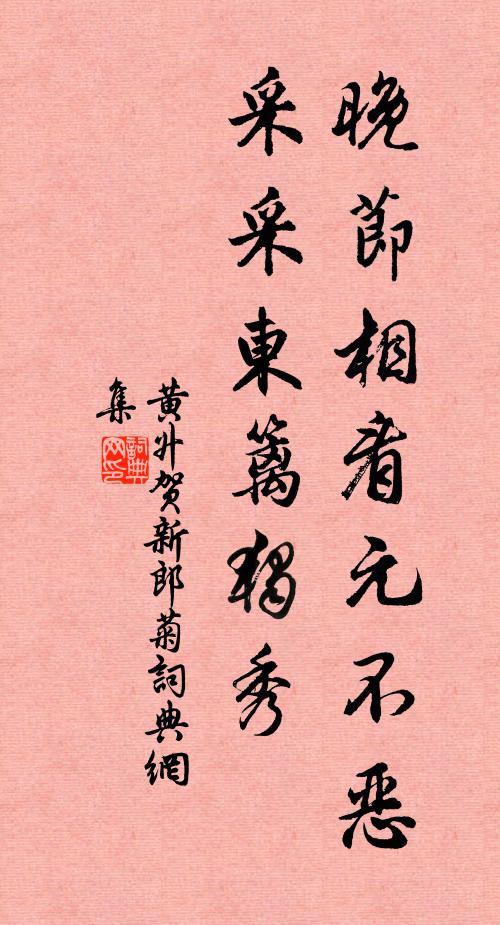 晚節相看元不惡
采采東籬獨秀
黃升賀新郎菊詞典網
集
詞典網印